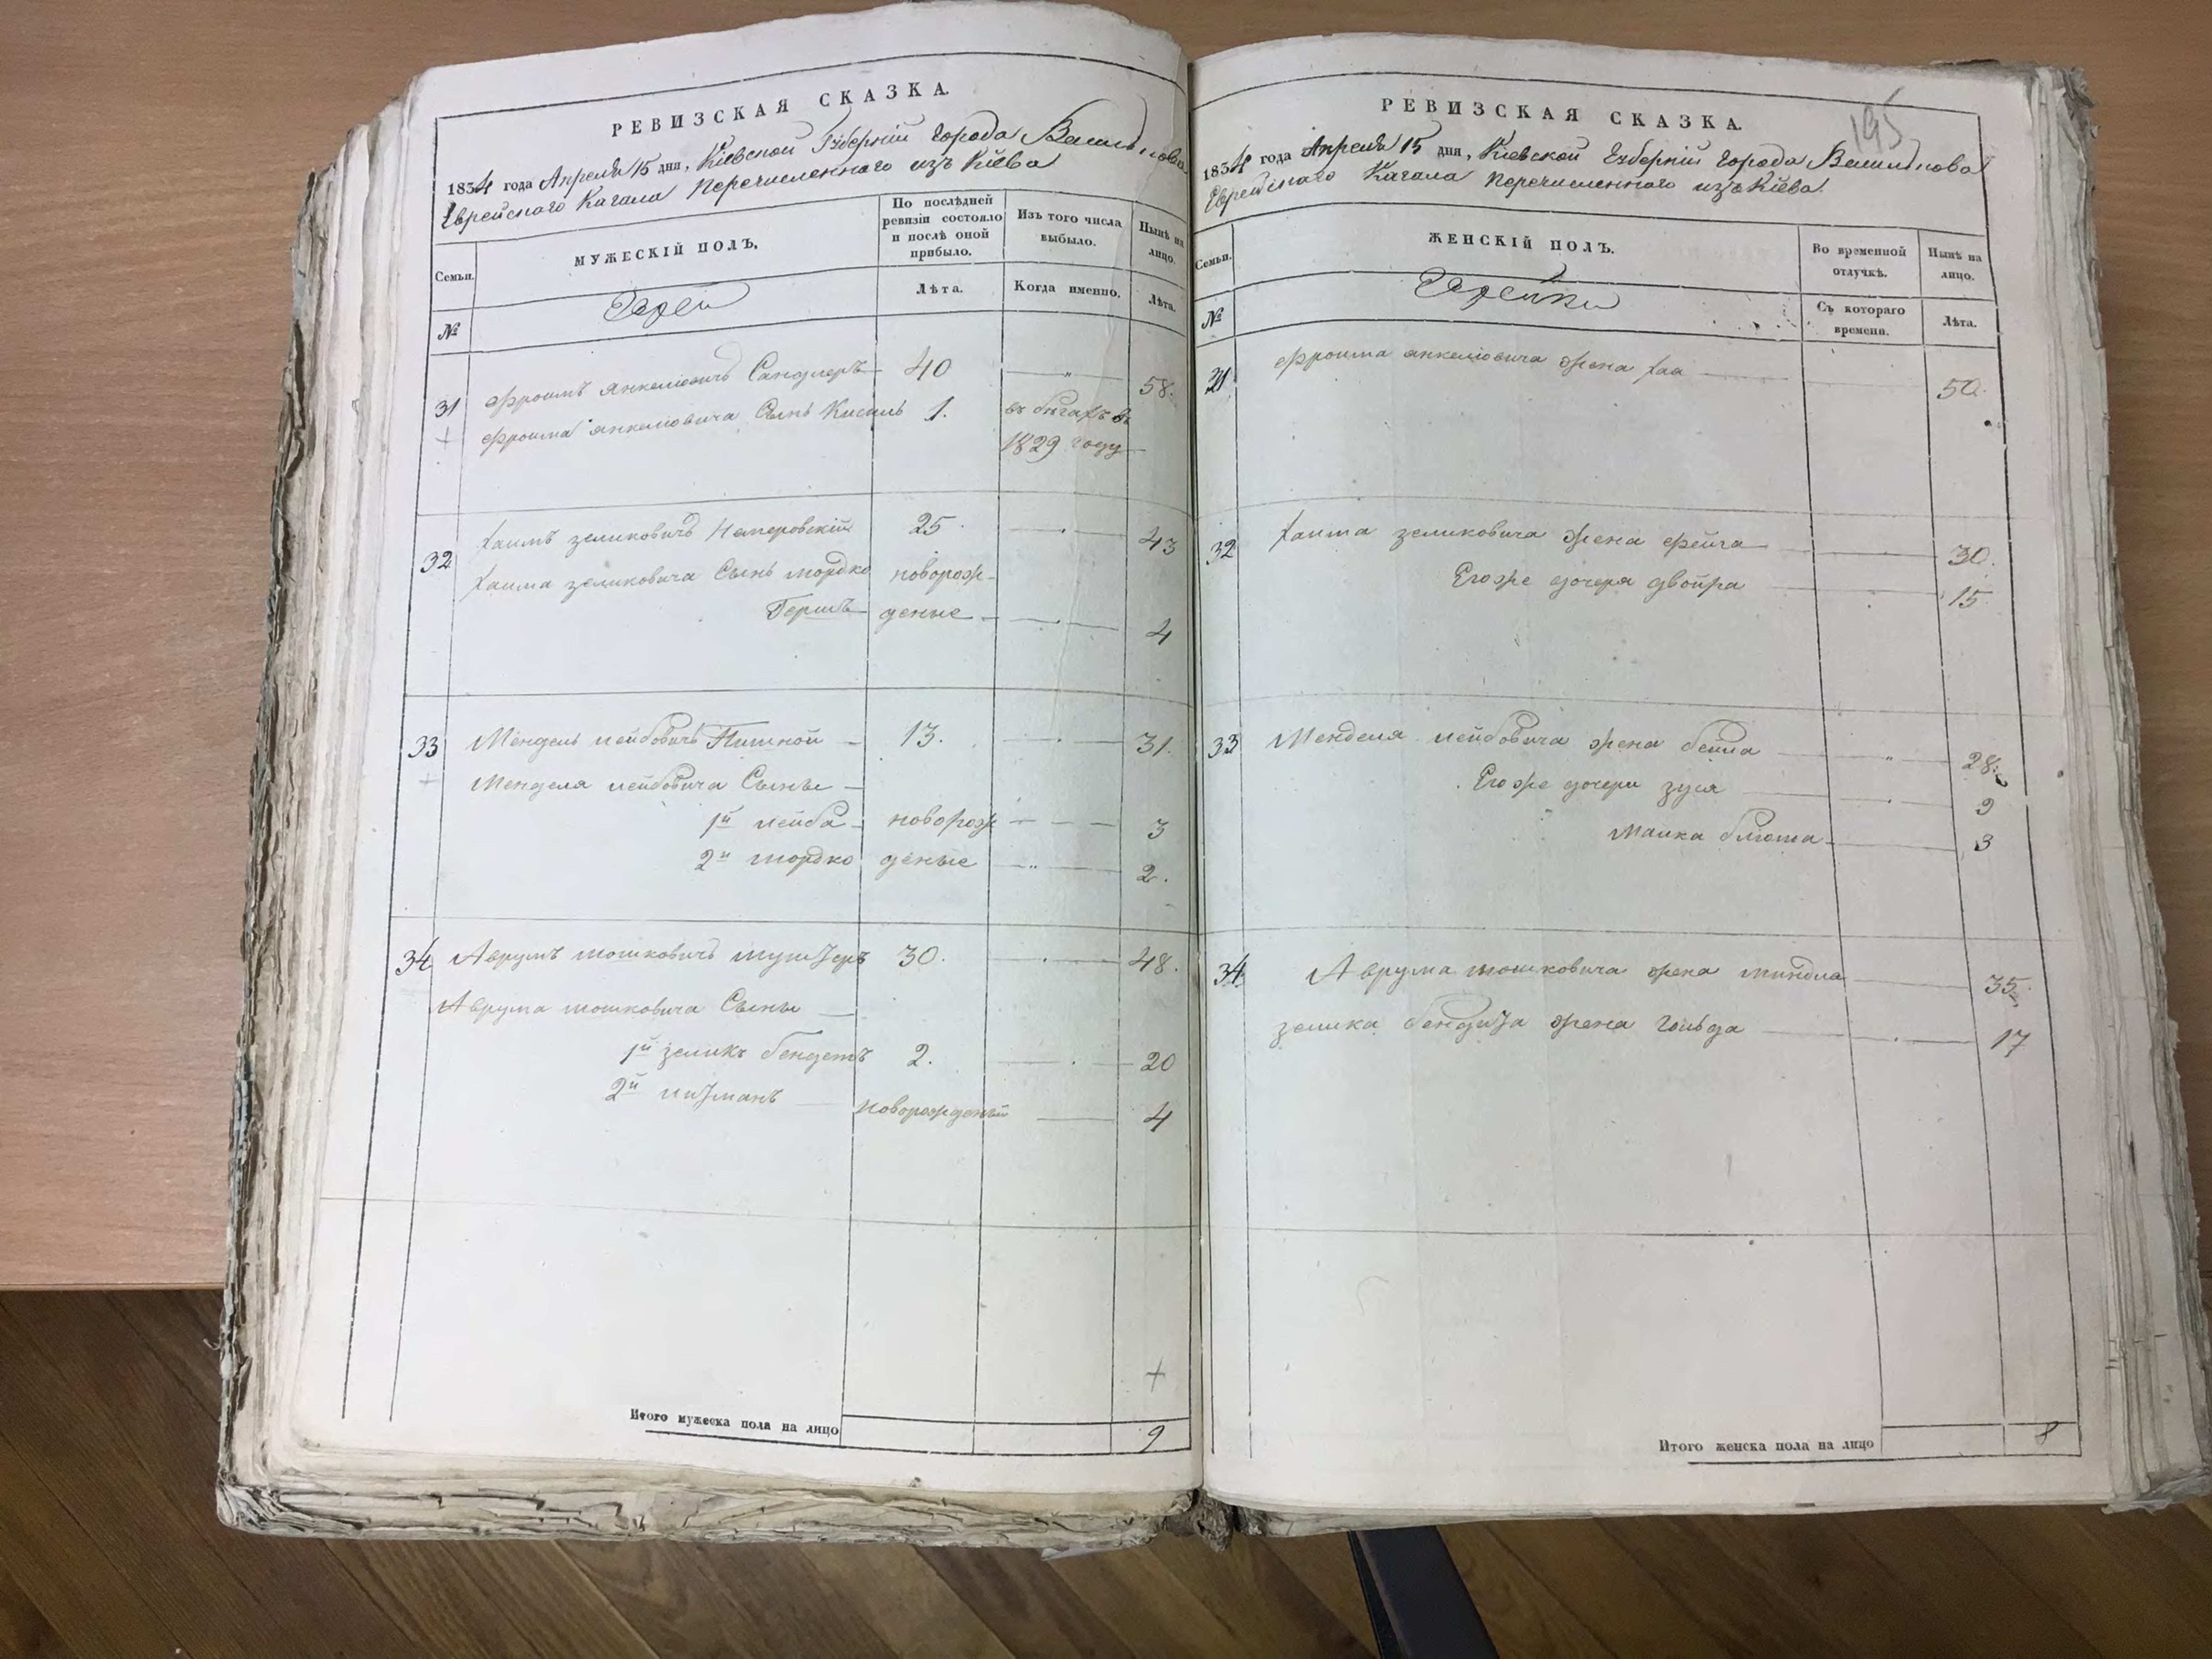 РЕВИЗСКАЯ СКАЗКА.
1834 года Апреля 15 дня, Кіевской Губерніи города Василькова
Еврейскаго Кагала перечисленнаго изъ Кіева
Семьи.
МУЖЕСКІЙ ПОЛЪ.
По послѣдней ревизіи состояло и послѣ оной прибыло.
Изъ того числа выбыло.
Нынѣ на лицо.
№
Евреи
Лѣта.
Когда именно.
Лѣта.
31 Фроимъ Янкеліовичъ Сандлеръ 40 — " — 58.
Фроима Янкеліовича Сынъ Кисиль 1. въ бѣгахъ въ
1829 году
32 Хаимъ Зеликовичъ 25. — 43
Хаима Зеликовича Сынъ Мордко новорож-
Гершъ деные — 4
33 Мендель Лейбовичъ 13. — 31.
Менделя Лейбовича Сыны —
1й Лейба новорож — 3
2й Мордко деные — 2.
34 Аврумъ Мошковичъ 30. — 48.
Аврума Мошковича Сыны —
1й Зеликъ Бендетъ 2. — 20
2й новорожденый — 4
+
Итого мужеска пола на лицо 9
195
РЕВИЗСКАЯ СКАЗКА.
1834 года Апреля 15 дня, Кіевской Губерніи города Василькова
Еврейскаго Кагала перечисленнаго изъ Кіева
Семьи.
ЖЕНСКІЙ ПОЛЪ.
Во временной отлучкѣ.
Нынѣ на лицо.
№
Еврейки
Съ котораго времени.
Лѣта.
31 Фроима Янкеліовича жена Хая — 50.
32 Хаима Зеликовича жена Фейга — 30.
Его же дочеря Двойра — 15
33 Менделя Лейбовича жена Бейла — " — 28.
Его же дочери Зуся — 9
Малка Блюма — 3
34 Аврума Мошковича жена Миндля — 35.
Зелика жена Гольда — 17
Итого женска пола на лицо 8